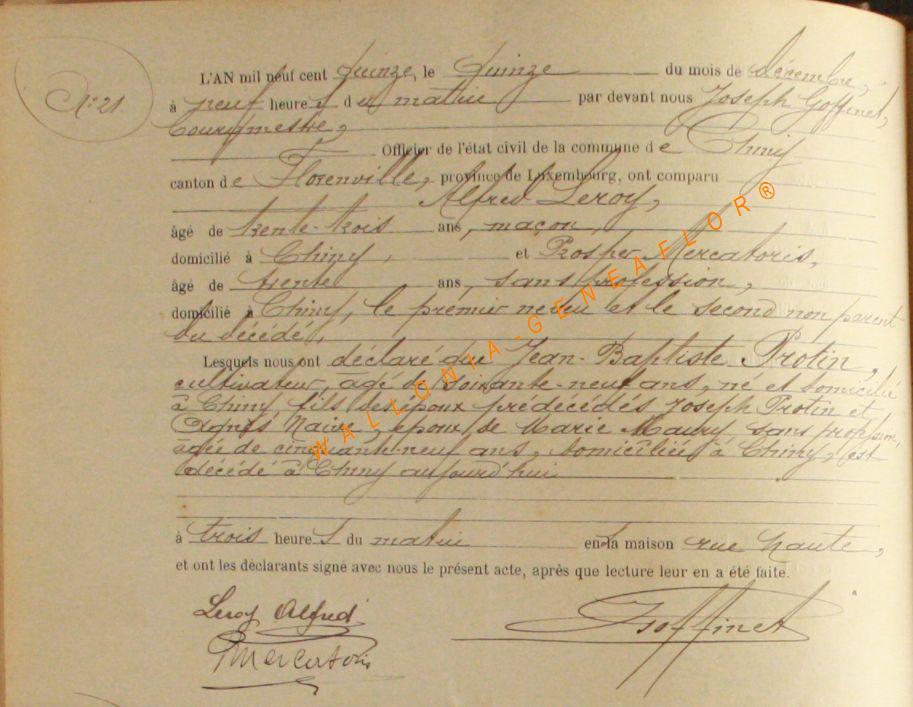 N°21
L'AN mil neuf cent quinze, le quinze du mois de décembre,
à neuf heures du matin par devant nous Joseph Goffinet,
bourgmestre,
Officier de l'état civil de la commune de Chiny
canton de Florenville, province de Luxembourg, ont comparu
Alfred Leroy,
âgé de trente-trois ans, maçon,
domicilié à Chiny, et Prosper Mercatoris,
âgé de trente ans, sans profession,
domicilié à Chiny, le premier neveu et le second non parent
du décédé,
Lesquels nous ont déclaré que Jean-Baptiste Protin,
cultivateur, agé de soixante-neuf ans, né et domicilié
à Chiny, fils des époux prédécédés Joseph Protin et
Agnès Naive, époux de Marie Maury, sans profession,
agée de cinquante-neuf ans, domiciliée à Chiny, est
décédé à Chiny aujourd'hui
à trois heures du matin en la maison rue haute,
et ont les déclarants signé avec nous le présent acte, après que lecture leur en a été faite.
Leroy Alfred
Goffinet
PMercatoris
WALLONIA-GENEAFLOR®